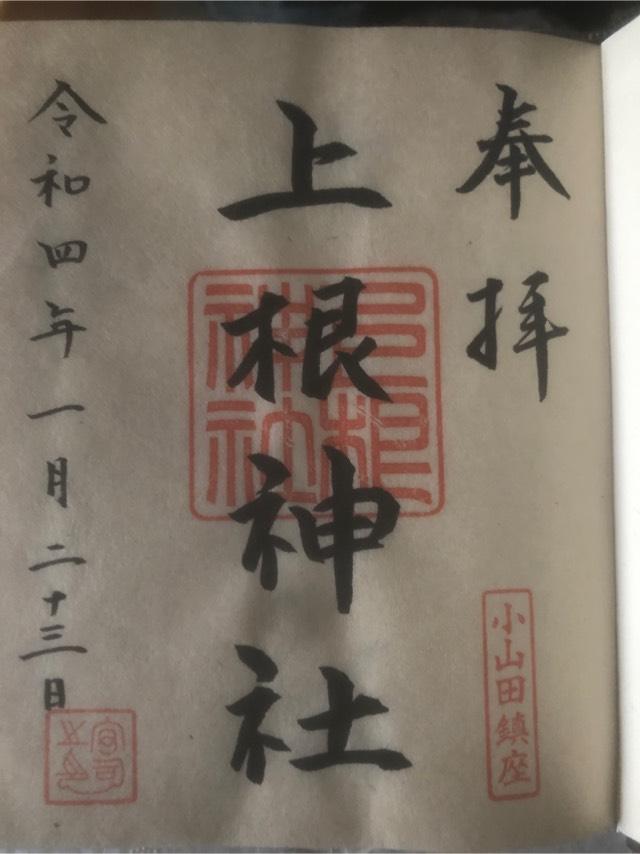 奉拝
小山田鎮座
上根神社
上根神社
令和四年一月二十三日